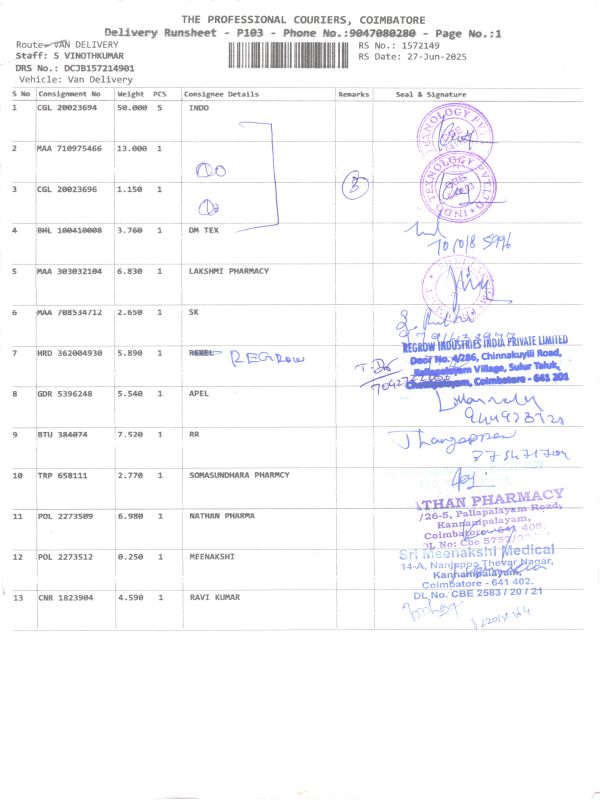 THE PROFESSIONAL COURIERS, COIMBATORE
Delivery Runsheet - P103 - Phone No.:9047080280 - Page No.:1
Route: VAN DELIVERY
Staff: S VINOTHKUMAR
DRS No.: DCJB157214901
Vehicle: Van Delivery
RS No.: 1572149
RS Date: 27-Jun-2025
S No Consignment No Weight PCS Consignee Details Remarks Seal & Signature
1 CGL 20023694 50.000 5 INDO
2 MAA 710975466 13.000 1
3 CGL 20023696 1.150 1 3
INDO TEXNOLOGY PVT.LTD
4 BHL 100410008 3.760 1 OM TEX
5 MAA 303032104 6.830 1 LAKSHMI PHARMACY
6 MAA 708534712 2.650 1 SK
7 HRD 362004930 5.890 1 ROXEL REGROW
REGROW INDUSTRIES INDIA PRIVATE LIMITED
Door No. 4/286, Chinnakuyili Road,
Village, Sulur Taluk,
Coimbatore - 641 201
8 GDR 5396248 5.540 1 APEL
9 BTU 384074 7.520 1 RR
Thangappan
10 TRP 658111 2.770 1 SOMASUNDHARA PHARMCY
11 POL 2273509 6.980 1 NATHAN PHARMA
ATHAN PHARMACY
/26-5, Pallapalayam Road,
Kannampalayam,
Coimbatore - 641 405.
DL No: Cbe 5752/
12 POL 2273512 0.250 1 MEENAKSHI
Sri Meenakshi Medical
14-A, Nanjappa Thevar Nagar,
Kannampalayam,
Coimbatore - 641 402.
DL No. CBE 2583 / 20 / 21
13 CNR 1823904 4.590 1 RAVI KUMAR